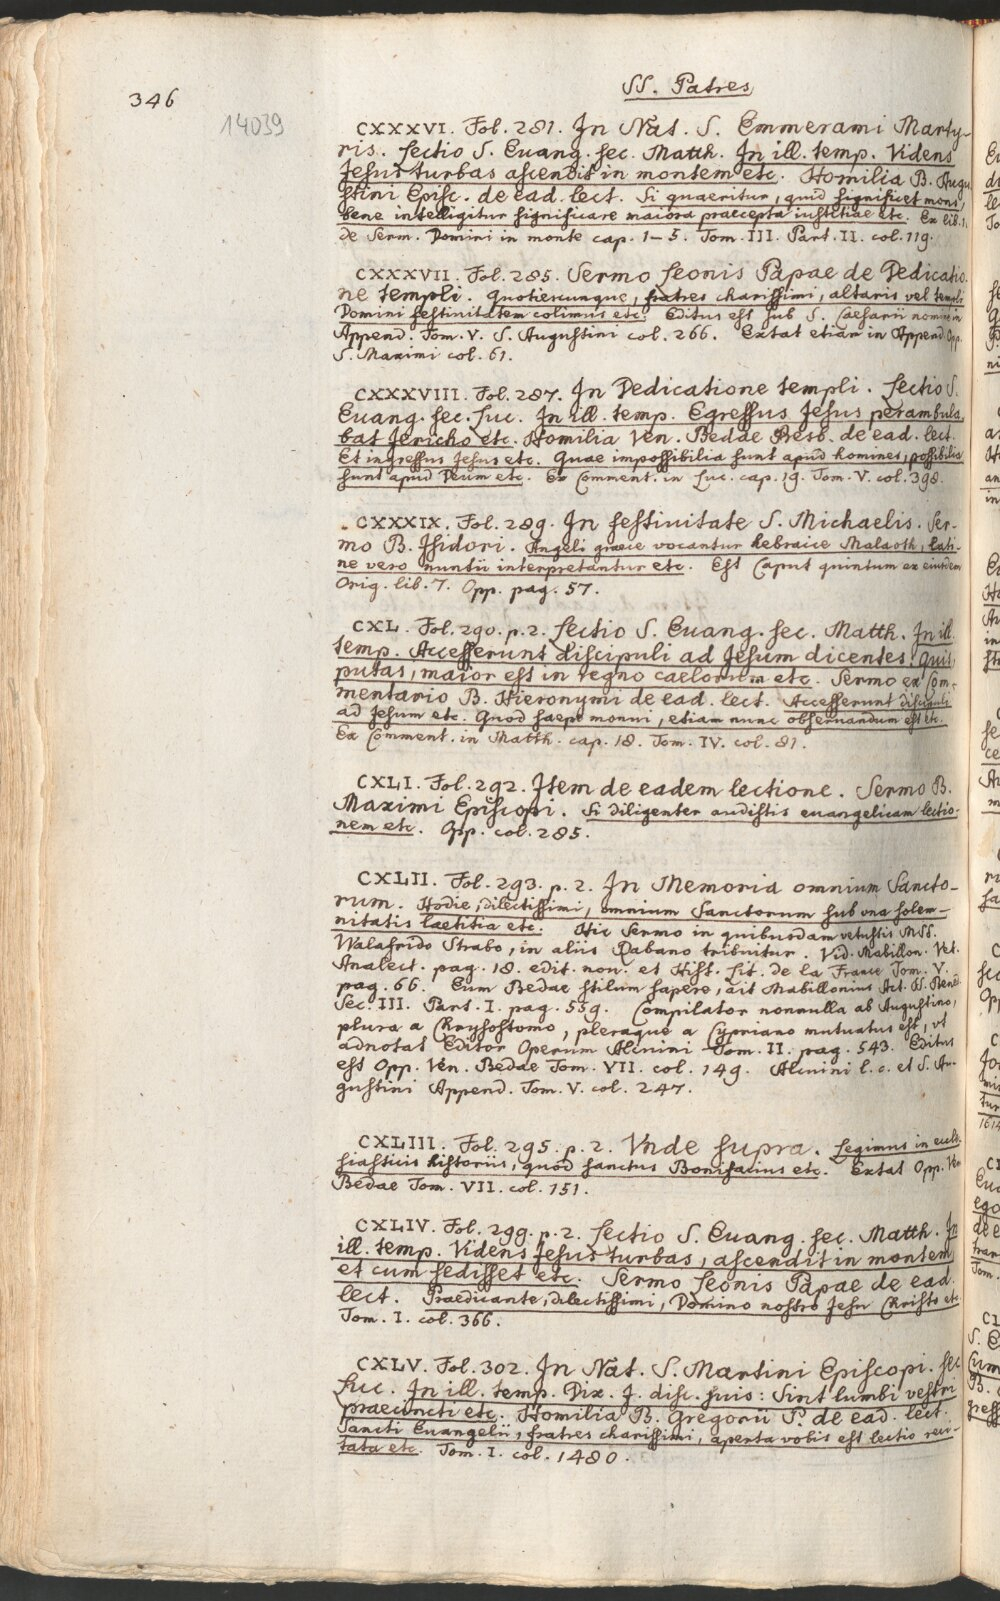 SS. Patres
346
14039
CXXXVI. Fol. 281. In Nat. S. Emmerami Marty-
ris. Lectio S. Euang. sec. Matth. In ill. temp. Videns
Jesus turbas ascendit in montem etc. Homilia B. Augu
stini Episc. de ead. lect. Si quaeritur, quid significet mons,
bene intelligitur significare maiora praecepta iustitiae etc. Ex lib. 1.
de Serm. Domini in monte cap. 1-5. Tom. III. Part. II. col. 119.
CXXXVII. Fol. 285. Sermo Leonis Papae de Dedicatio
ne templi. Quotiescunque, fratres charissimi, altaris vel templi
Domini festinitatem colimus etc. Editus est sub S. Caesarii nomine in
Append. Tom. V. S. Augustini col. 266. Extat etiam in Append. Opp.
S. Maximi col. 61.
CXXXVIII. Fol. 287. In Dedicatione templi. Lectio S.
Euang. sec. Luc. In ill. temp. Egressus Jesus perambula
bat Jericho etc. Homilia Ven. Bedae Presb. de ead. lect.
Et ingressus Jesus etc. Quae impossibilia sunt apud homines, possibilia
sunt apud Deum etc. Ex Comment. in Luc. cap. 19. Tom. V. col. 398.
CXXXIX. Fol. 289. In festiuitate S. Michaelis. Ser-
mo B. Isidori. Angeli graece vocantur hebraice Malaoth, lati-
ne vero nuntii interpretantur etc. Est Caput quintum ex eiusdem
Orig. lib. 7. Opp. pag. 57.
CXL. Fol. 290. p. 2. Lectio S. Euang. sec. Matth. In ill.
temp. Accesserunt discipuli ad Jesum dicentes: Quis,
putas, maior est in regno caelorum etc. Sermo ex Com-
mentario B. Hieronymi de ead. lect. Accesserunt discipuli
ad Jesum etc. Quod saepe monui, etiam nunc obseruandum est etc.
Ex Comment. in Matth. cap. 18. Tom. IV. col. 81.
CXLI. Fol. 292. Item de eadem lectione. Sermo B.
Maximi Episcopi. Si diligenter audistis euangelicam lectio-
nem etc. Opp. col. 285.
CXLII. Fol. 293. p. 2. In Memoria omnium Sancto-
rum. Hodie, dilectissimi, omnium Sanctorum sub una solem-
nitatis laetitia etc. Hic Sermo in quibusdam vetustis MSS.
Walafrido Strabo, in aliis Rabano tribuitur. Vid. Mabillon. Vet.
Analect. pag. 18. edit. nou. et Hist. Lit. de la France Tom. V.
pag. 66. Eum Bedae stilum sapere, ait Mabillonius Act. SS. Bened.
Sec. III. Part. I. pag. 559. Compilator nonnulla ab Augustino,
plura a Chrysostomo, pleraque a Cypriano mutuatus est, vt
adnotat Editor Operum Alcuini Tom. II. pag. 543. Editus
est Opp. Ven. Bedae Tom. VII. col. 149. Alcuini l. c. et S. Au-
gustini Append. Tom. V. col. 247.
CXLIII. Fol. 295. p. 2. Vnde supra. Legimus in eccle-
siasticis historiis, quod sanctus Bonifacius etc. Extat Opp. Ven
Bedae Tom. VII. col. 151.
CXLIV. Fol. 299. p. 2. Lectio S. Euang. sec. Matth. In
ill. temp. Videns Jesus turbas, ascendit in montem
et cum sedisset etc. Sermo Leonis Papae de ead.
lect. Praedicante, dilectissimi, Domino nostro Jesu Christo etc.
Tom. I. col. 366.
CXLV. Fol. 302. In Nat. S. Martini Episcopi. sec
Luc. In ill. temp. Dix. J. disc. suis: Sint lumbi vestri
praecincti etc. Homilia B. Gregorii P. de ead. lect.
Sancti Euangelii, fratres charissimi, aperta vobis est lectio reci-
tata etc. Tom. I. col. 1480.